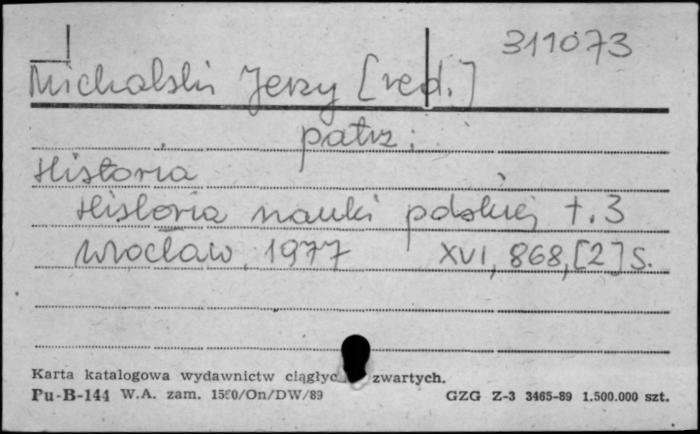 311073
Michalski Jerzy [red.]
patrz:
Historia
Historia nauki polskiej t. 3
Wrocław, 1977 XVI, 868, [2] s.
Karta katalogowa wydawnictw ciągłyc zwartych.
Pu-B-144 W.A. zam. 1580/On/DW/89 GZG Z-3 3465-89 1.500.000 szt.